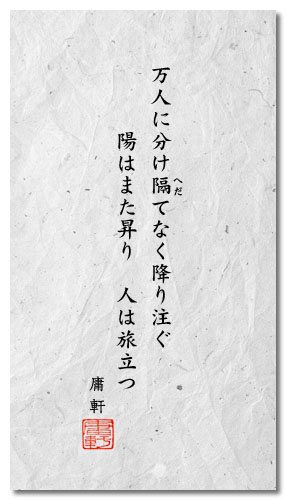 万人に分け隔てなく降り注ぐ
へだ
陽はまた昇り　人は旅立つ
庸軒